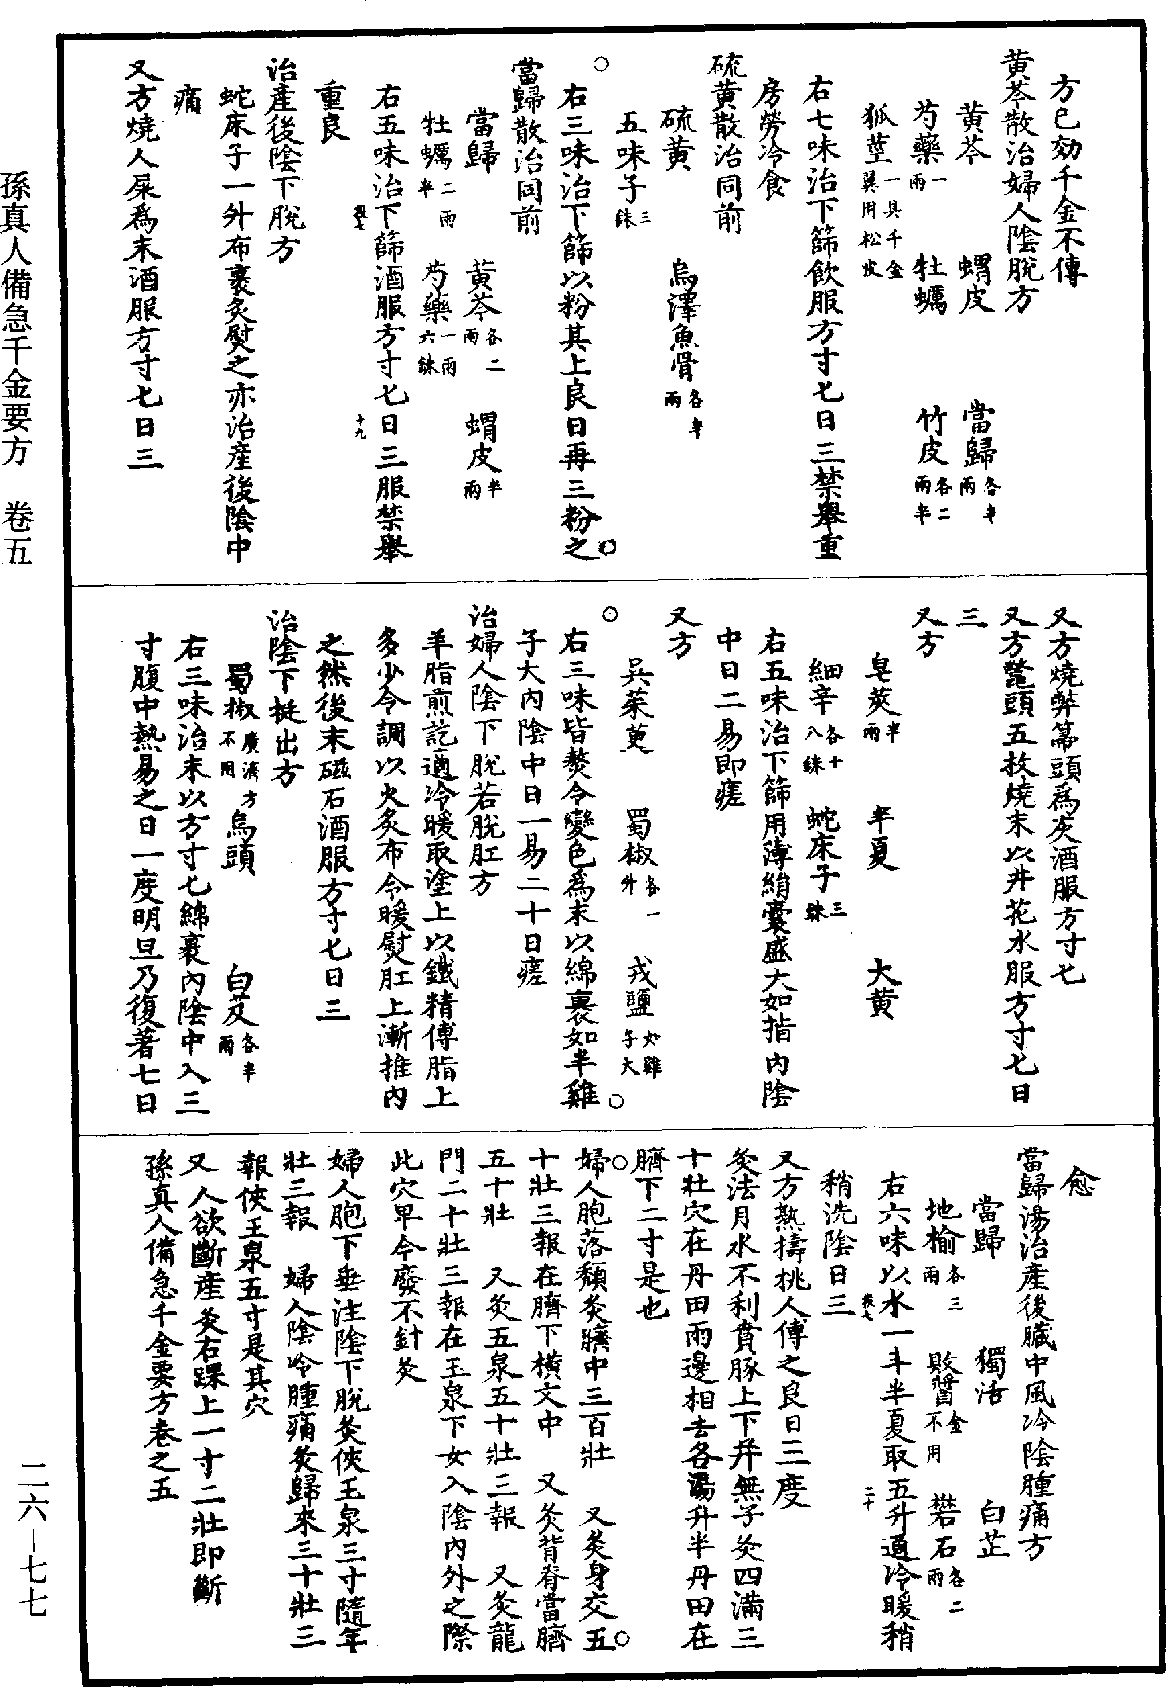 方已効千金不傳
黄芩散治婦人陰脱方
黄芩　蝟皮　當歸各半兩
芍藥一兩　牡蠣　竹皮各二兩半
狐莖一具千金翼用松皮
右七味治下篩飲服方寸匕日三禁舉重
房勞冷食
硫黄散治同前
硫黄　烏澤魚骨各半兩
五味子三銖
右三味治下篩以粉其上良日再三粉之
當歸散治同前
當歸　黄芩各二兩　蝟皮半兩
牡蠣二兩半　芍藥一兩六銖
右五味治下篩酒服方寸匕日三服禁舉
十九
重良
治產後陰下脱方
蛇床子一升布裹炙熨之亦治產後陰中
痛
又方燒人屎爲末酒服方寸匕日三
又方燒弊箒頭爲灰酒服方寸匕
又方鼈頭五枚燒末以井花水服方寸匕日
三
又方
皂莢半兩　半夏　大黄
細辛各十八銖　蛇床子三銖
右五味治下篩用薄絹囊盛大如指内陰
中日二易即瘥
又方
吳茱萸　蜀椒各一升　戎鹽如雞子大
右三味皆熬令變色爲末以綿裹如半雞
子大内陰中日一易二十日瘥
治婦人陰下脱若脱肛方
羊脂煎訖適冷暖取塗上以鐵精傅脂上
多少令調以火炙布令暖熨肛上漸推内
之然後末磁石酒服方寸匕日三
治陰下挺出方
蜀椒廣濟方不用　烏頭　白芨各半兩
右三味治末以方寸匕綿裹内陰中入三
寸腹中熱易之日一度明旦乃復著七日
愈
當歸湯治產後臟中風冷陰腫痛方
當歸　獨活　白芷
地榆各三兩　敗醬千金不用　礬石各二兩
右六味以水一斗半夏取五升適冷暖稍
二十
稍洗陰日三
又方熟擣桃人傅之良日三度
灸法月水不利賁豚上下并無子灸四滿三
十壯穴在丹田兩邊相去各 升半丹田在
臍下二寸是也
婦人胞落頹灸臍中三百壯　又灸身交五
十壯三報在臍下横文中　又灸背脊當臍
五十壯　又灸玉泉五十壯三報　又灸龍
門二十壯三報在玉泉下女入陰内外之際
此穴卑今廢不針灸
婦人胞下垂注陰下脱灸俠玉泉三寸隨年
壯三報　婦人陰冷腫痛灸歸來三十壯三
報俠玉泉五寸是其穴
又　人欲斷產灸右踝上一寸二壯即斷
孫真人備急千金要方卷之五
孫真人備急千金要方　卷五
二六—七七